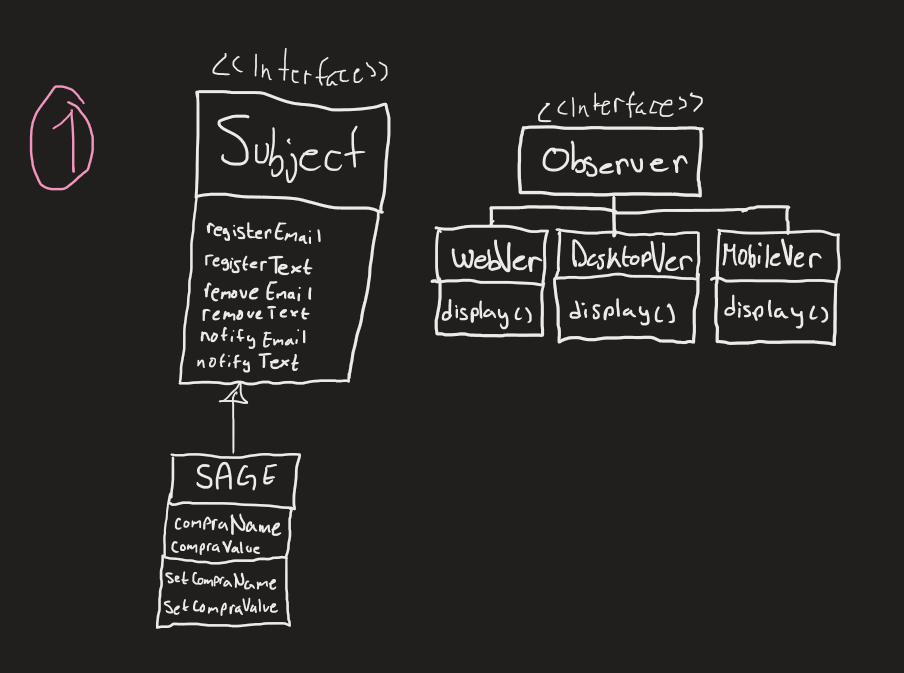 1
<<Interface>>
Subject
registerEmail
registerText
remove Email
removeText
notify Email
notify Text
SAGE
compraName
compraValue
setCompraName
setCompraValue
<<Interface>>
Observer
WebVer
display()
DesktopVer
display()
MobileVer
display()